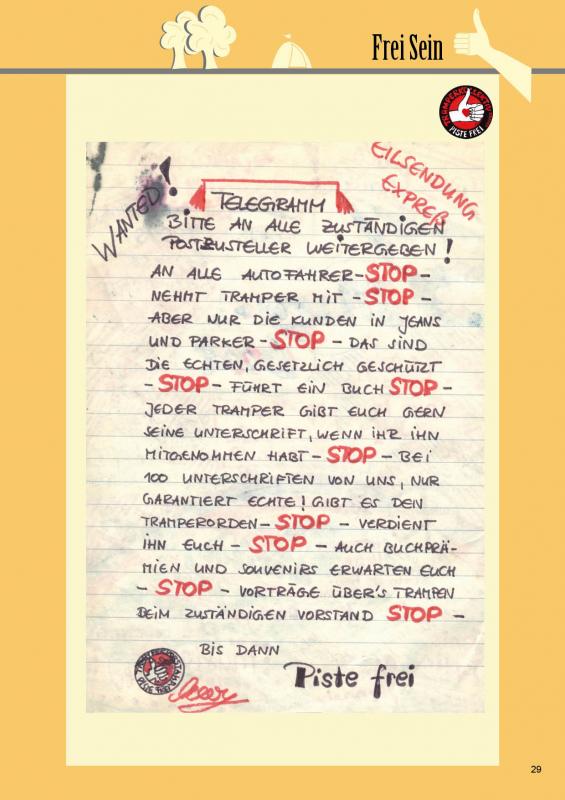 Frei Sein
PISTE FREI
EILSENDUNG
EXPREß
WANTED!
TELEGRAMM
BITTE AN ALLE ZUSTÄNDIGEN
POSTZUSTELLER WEITERGEBEN!
AN ALLE AUTOFAHRER-STOP-
NEHMT TRAMPER MIT -STOP-
ABER NUR DIE KUNDEN IN JEANS
UND PARKER-STOP- DAS SIND
DIE ECHTEN, GESETZLICH GESCHÜTZT
-STOP- FÜHRT EIN BUCH STOP-
JEDER TRAMPER GIBT EUCH GERN
SEINE UNTERSCHRIFT, WENN IHR IHN
MITGENOMMEN HABT-STOP- BEI
100 UNTERSCHRIFTEN VON UNS, NUR
GARANTIERT ECHTE! GIBT ES DEN
TRAMPERORDEN-STOP- VERDIENT
IHN EUCH - STOP - AUCH BUCHPRÄ-
MIEN UND SOUVENIRS ERWARTEN EUCH
- STOP - VORTRÄGE ÜBER'S TRAMPEN
BEIM ZUSTÄNDIGEN VORSTAND STOP -
BIS DANN
Piste frei
29